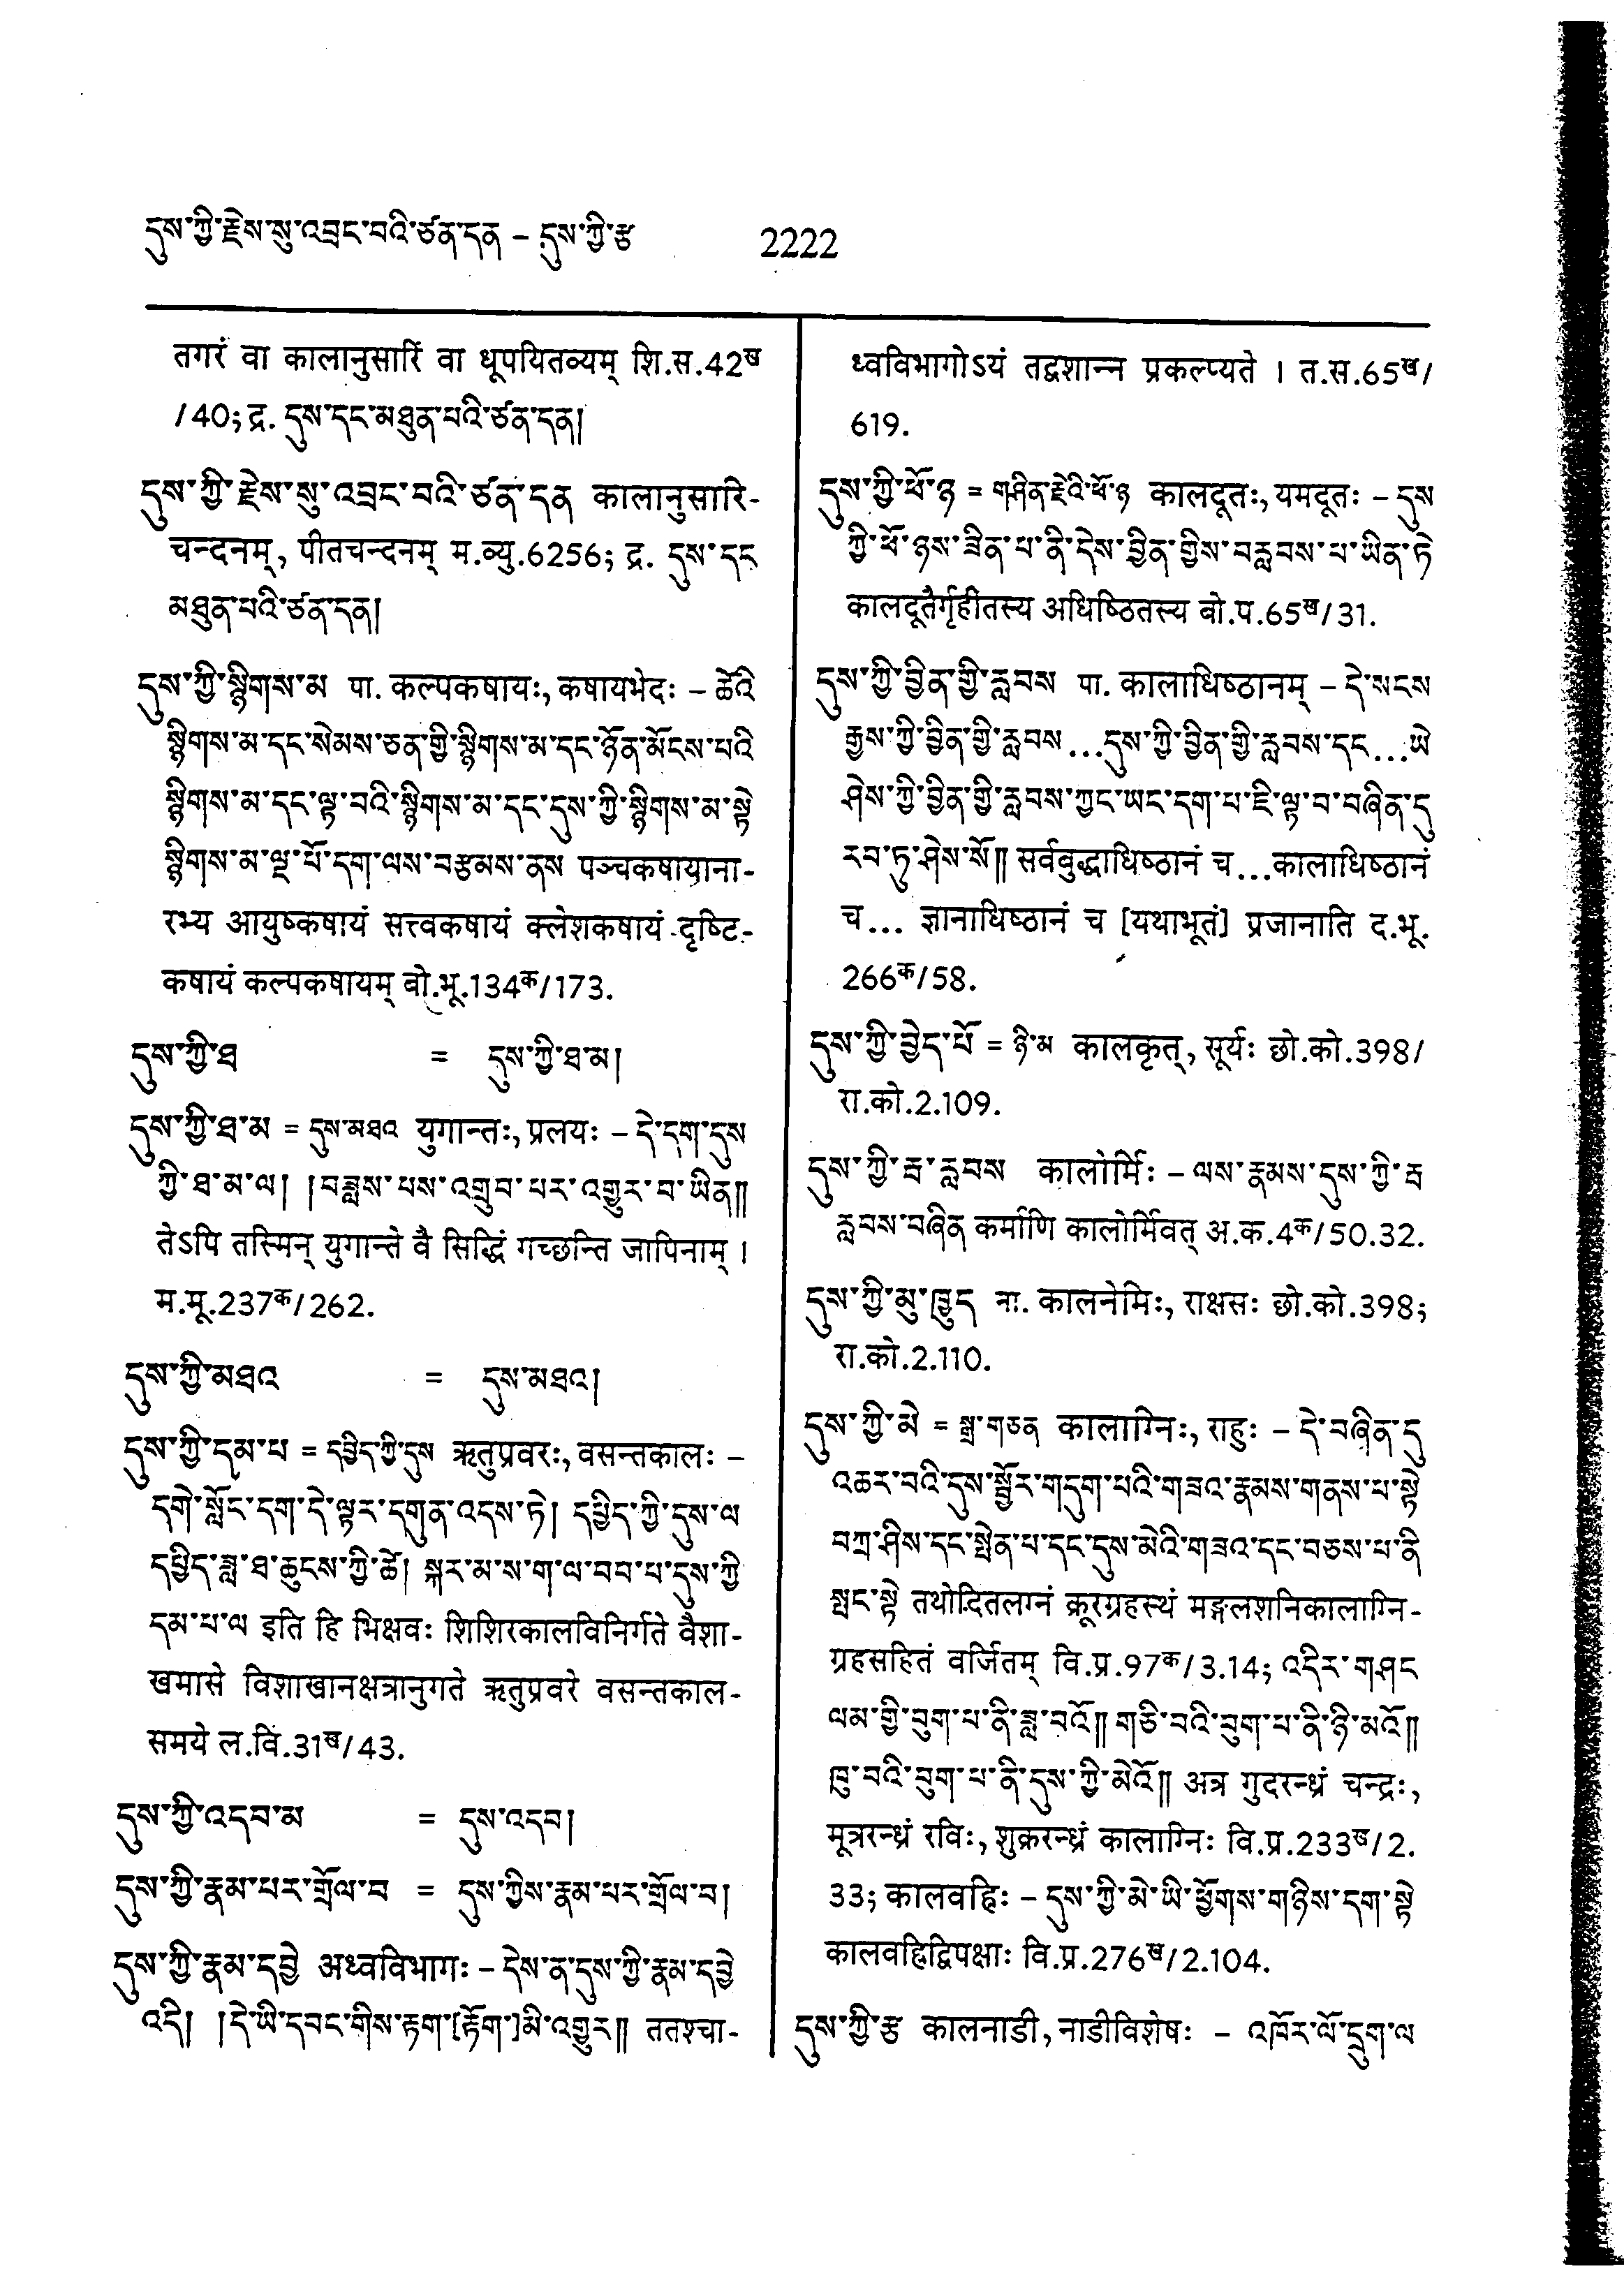 དུས་ཀྱི་རྗེས་སུ་འབྲང་བའི་ཙན་དན – དུས་ཀྱི་རྩ 2222
तगरं वा कालानुसारिं वा धूपयितव्यम् शि.स.42ख
/40; द्र. དུས་དང་མཐུན་པའི་ཙན་དན།
དུས་ཀྱི་རྗེས་སུ་འབྲང་བའི་ཙན་དན कालानुसारि-
चन्दनम्, पीतचन्दनम् म.व्यु.6256; द्र. དུས་དང
མཐུན་པའི་ཙན་དན།
དུས་ཀྱི་སྙིགས་མ पा. कल्पकषायः, कषायभेदः – ཚེའི
སྙིགས་མ་དང་སེམས་ཅན་གྱི་སྙིགས་མ་དང་ཉོན་མོངས་པའི
སྙིགས་མ་དང་ལྟ་བའི་སྙིགས་མ་དང་དུས་ཀྱི་སྙིགས་མ་སྟེ
སྙིགས་མ་ལྔ་པོ་དག་ལས་བརྩམས་ནས पञ्चकषायाना-
रभ्य आयुष्कषायं सत्त्वकषायं क्लेशकषायं दृष्टि-
कषायं कल्पकषायम् बो.भू.134क/173.
དུས་ཀྱི་ཐ = དུས་ཀྱི་ཐ་མ།
དུས་ཀྱི་ཐ་མ = དུས་མཐའ युगान्तः, प्रलयः – དེ་དག་དུས
ཀྱི་ཐ་མ་ལ། །བཟླས་པས་འགྲུབ་པར་འགྱུར་བ་ཡིན༎
तेऽपि तस्मिन् युगान्ते वै सिद्धिं गच्छन्ति जापिनाम् ।
म.मू.237क/262.
དུས་ཀྱི་མཐའ = དུས་མཐའ།
དུས་ཀྱི་དམ་པ = དཔྱིད་ཀྱི་དུས ऋतुप्रवरः, वसन्तकालः –
དགེ་སློང་དག་དེ་ལྟར་དགུན་འདས་ཏེ། དཔྱིད་ཀྱི་དུས་ལ
དཔྱིད་ཟླ་ཐ་ཆུངས་ཀྱི་ཚེ། སྐར་མ་ས་ག་ལ་བབ་པ་དུས་ཀྱི
དམ་པ་ལ इति हि भिक्षवः शिशिरकालविनिर्गते वैशा-
खमासे विशाखानक्षत्रानुगते ऋतुप्रवरे वसन्तकाल-
समये ल.वि.31ख/43.
དུས་ཀྱི་འདབ་མ = དུས་འདབ།
དུས་ཀྱི་རྣམ་པར་གྲོལ་བ = དུས་ཀྱིས་རྣམ་པར་གྲོལ་བ།
དུས་ཀྱི་རྣམ་དབྱེ अध्वविभागः – དེས་ན་དུས་ཀྱི་རྣམ་དབྱེ
འདི། །དེ་ཡི་དབང་གིས་རྟག་[རྟོག་]མི་འགྱུར༎ ततश्चा-
ध्वविभागोऽयं तद्वशान्न प्रकल्प्यते । त.स.65ख/
619.
དུས་ཀྱི་ཕོ་ཉ = གཤིན་རྗེའི་ཕོ་ཉ कालदूतः, यमदूतः – དུས
ཀྱི་ཕོ་ཉས་ཟིན་པ་ནི་དེས་བྱིན་གྱིས་བརླབས་པ་ཡིན་ཏེ
कालदूतैर्गृहीतस्य अधिष्ठितस्य बो.प.65ख/31.
དུས་ཀྱི་བྱིན་གྱི་རླབས पा. कालाधिष्ठानम् – དེ་སངས
རྒྱས་ཀྱི་བྱིན་གྱི་རླབས...དུས་ཀྱི་བྱིན་གྱི་རླབས་དང...ཡེ
ཤེས་ཀྱི་བྱིན་གྱི་རླབས་ཀྱང་ཡང་དག་པ་ཇི་ལྟ་བ་བཞིན་དུ
རབ་ཏུ་ཤེས་སོ༎ सर्वबुद्धाधिष्ठानं च...कालाधिष्ठानं
च... ज्ञानाधिष्ठानं च [यथाभूतं] प्रजानाति द.भू.
266क/58.
དུས་ཀྱི་བྱེད་པོ = ཉི་མ कालकृत्, सूर्यः छो.को.398/
रा.को.2.109.
དུས་ཀྱི་རྦ་རླབས कालोर्मिः – ལས་རྣམས་དུས་ཀྱི་རྦ
རླབས་བཞིན कर्माणि कालोर्मिवत् अ.क.4क/50.32.
དུས་ཀྱི་མུ་ཁྱུད ना. कालनेमिः, राक्षसः छो.को.398;
रा.को.2.110.
དུས་ཀྱི་མེ = སྒྲ་གཅན कालाग्निः, राहुः – དེ་བཞིན་དུ
འཆར་བའི་དུས་སྦྱོར་གདུག་པའི་གཟའ་རྣམས་གནས་པ་སྟེ
བཀྲ་ཤིས་དང་སྤེན་པ་དང་དུས་མེའི་གཟའ་དང་བཅས་པ་ནི
སྤང་སྟེ तथोदितलग्नं क्रूरग्रहस्थं मङ्गलशनिकालाग्नि-
ग्रहसहितं वर्जितम् वि.प्र.97क/3.14; འདིར་གཤང
ལམ་གྱི་བུག་པ་ནི་ཟླ་བའོ༎ གཅི་བའི་བུག་པ་ནི་ཉི་མའོ༎
ཁུ་བའི་བུག་པ་ནི་དུས་ཀྱི་མེའོ༎ अत्र गुदरन्ध्रं चन्द्रः,
मूत्ररन्ध्रं रविः, शुक्ररन्ध्रं कालाग्निः वि.प्र.233ख/2.
33; कालवह्निः – དུས་ཀྱི་མེ་ཡི་ཕྱོགས་གཉིས་དག་སྟེ
कालवह्निद्विपक्षाः वि.प्र.276ख/2.104.
དུས་ཀྱི་རྩ कालनाडी, नाडीविशेषः – འཁོར་ལོ་དྲུག་ལ